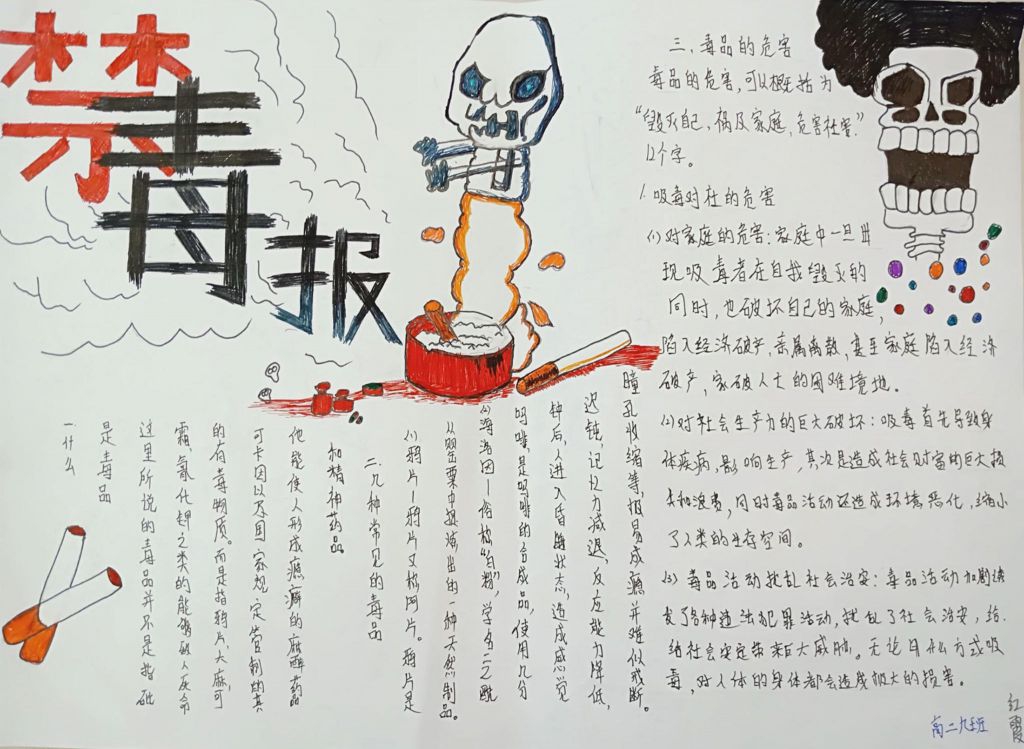 禁毒报
一什么
是毒品
这里所说的毒品并不是指砒
霜、氰化钾之类的能够致人反命
的有毒物质。而是指鸦片、大麻、可
可卡因以及国家规定管制的其
他能使人形成瘾癖的麻醉药品
和精神药品
二、几种常见的毒品
(1)鸦片—鸦片又称阿片。鸦片是
从罂粟中提炼出的一种天然制品。
(2)海洛因—俗称“白粉”,学名二乙酰
吗啡,是吗啡的合成品,使用几分
钟后,人进入昏睡状态,造成感觉
迟钝,记忆力减退,反应能力降低,
瞳孔收缩等,极易成瘾并难似戒断。
三、毒品的危害
毒品的危害,可以概括为
“毁灭自己,祸及家庭,危害社害”
12个字。
1.吸毒对社的危害
(1)对家庭的危害:家庭中一旦出
现吸毒者在自我毁灭的
同时,也破坏自己的家庭,
陷入经济破产,亲属离散,甚至家庭陷入经济
破产,家破人亡的困难境地。
(2)对社会生产力的巨大破坏:吸毒首先导致身
体疾病,影响生产,其次是造成社会财富的巨大损
失和浪费,同时毒品活动还造成环境恶化,缩小
了人类的生存空间。
(3)毒品活动扰乱社会治安:毒品活动加剧诱
发了各种违法犯罪活动,扰乱了社会治安,给
给社会安定带来巨大威胁。无论用什么方式吸
毒,对人体的身体都会造成极大的损害。
高二九班
红霞